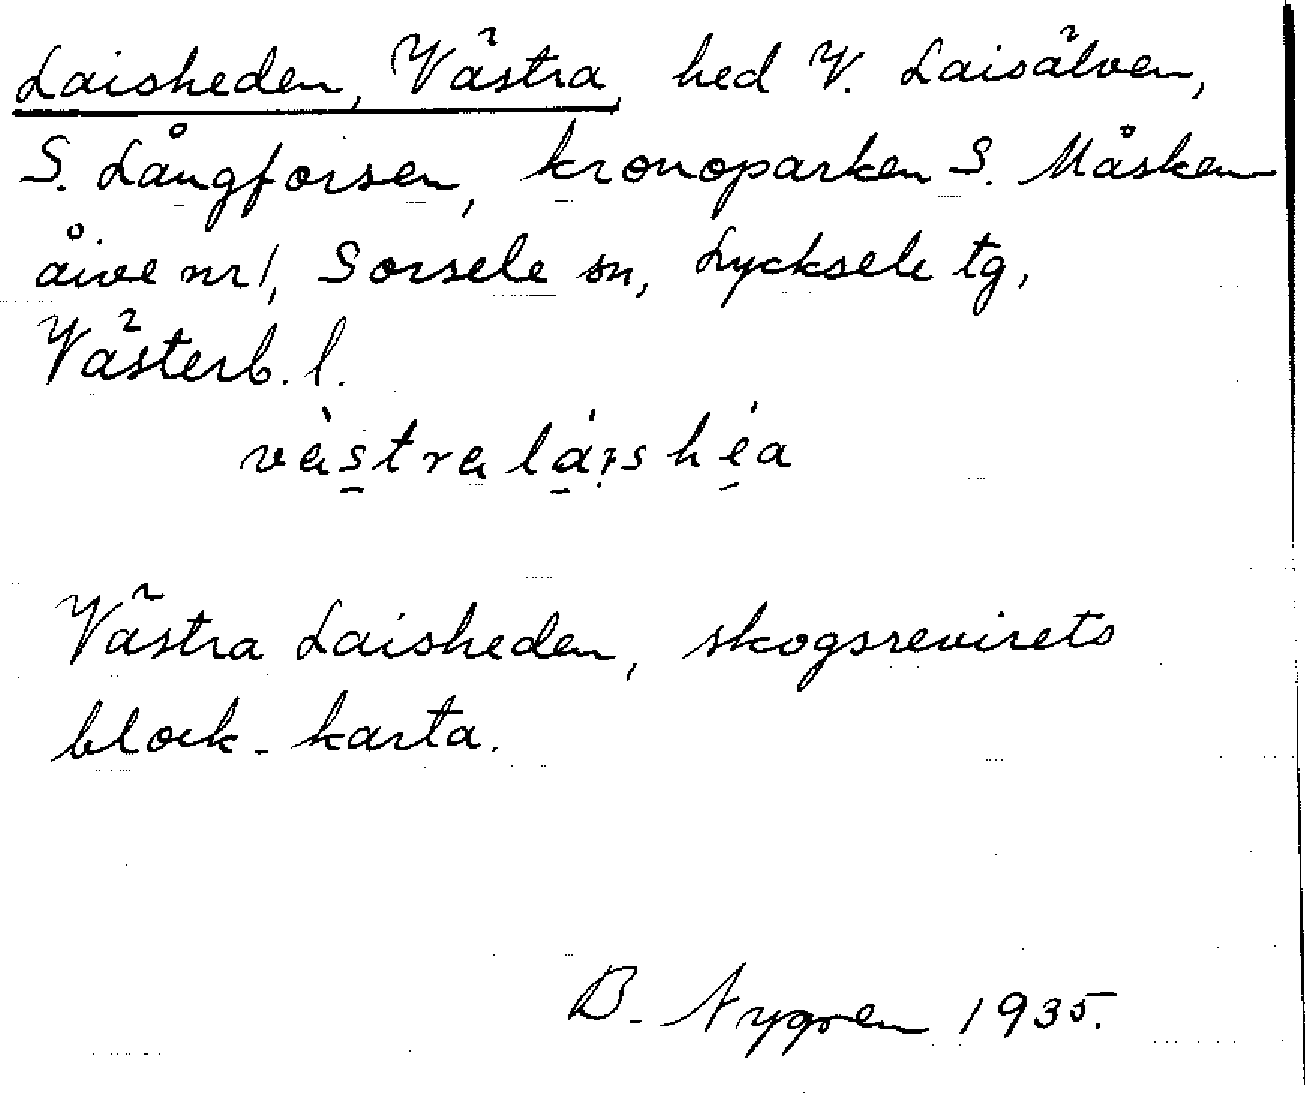 Laisheden, Västra, hed V. Laisälven,
S. Långforsen, kronoparken S. Måsken
åive nr 1, Sorsele sn, Lycksele tg,
Västerb. l.
Västra Laisheden, skogsrevirets
block-karta.
B. Nygren 1935.